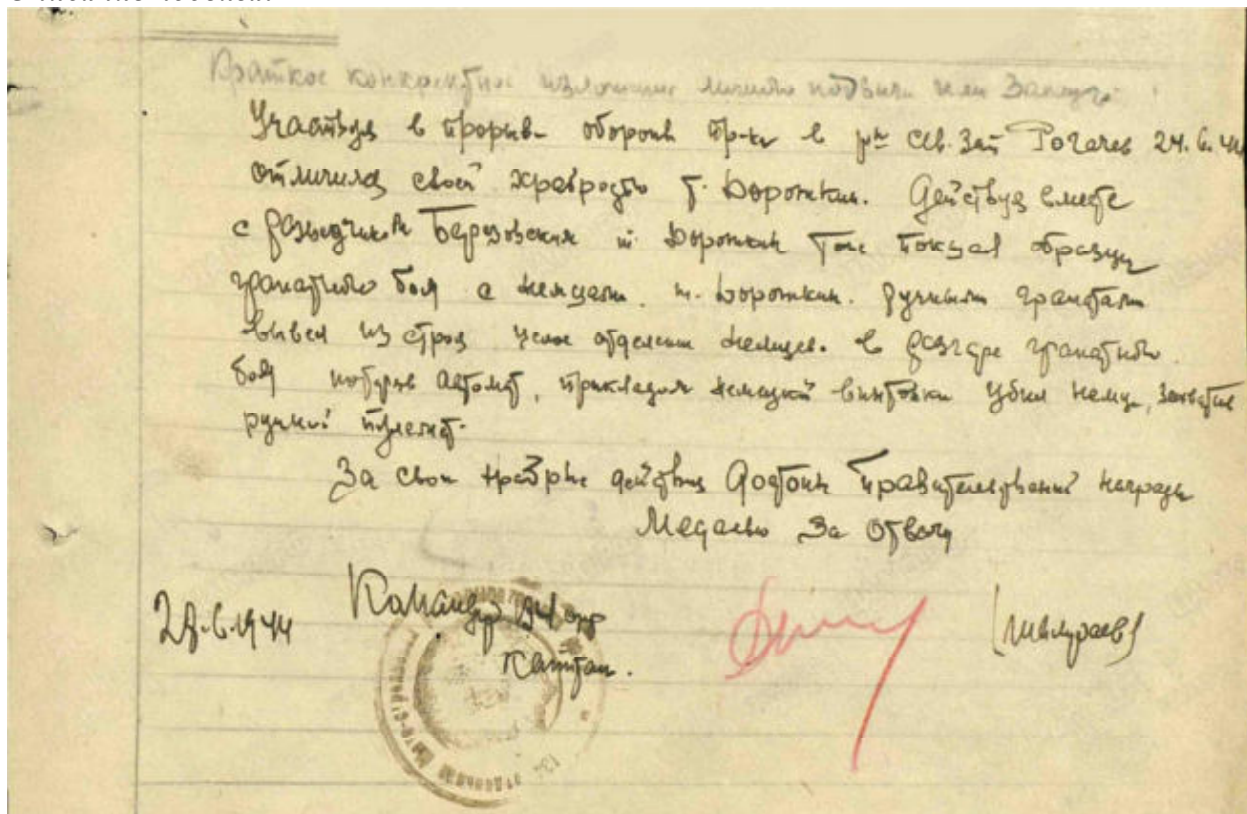 Краткое конкретное изложение личного подвига или заслуг:
Участвуя в прорыве обороны пр-ка в р-не сев. зап Рогачев 24.6.44
отличился своей храбростью т. Дорожкин. Действуя вместе
с разведчиком Березовским т. Дорожкин тоже показал образцы
гранатного боя с немцами. т. Дорожкин. ручными гранатами
вывел из строя целое отделение немцев. в разгаре гранатного
боя потеряв автомат, прикладом немецкой винтовки убил немца, захватив
ручной пулемет.
За свои храбрые действия достоин правительственной награды
Медалью За Отвагу
Командир орр
6.1944
Капитан.